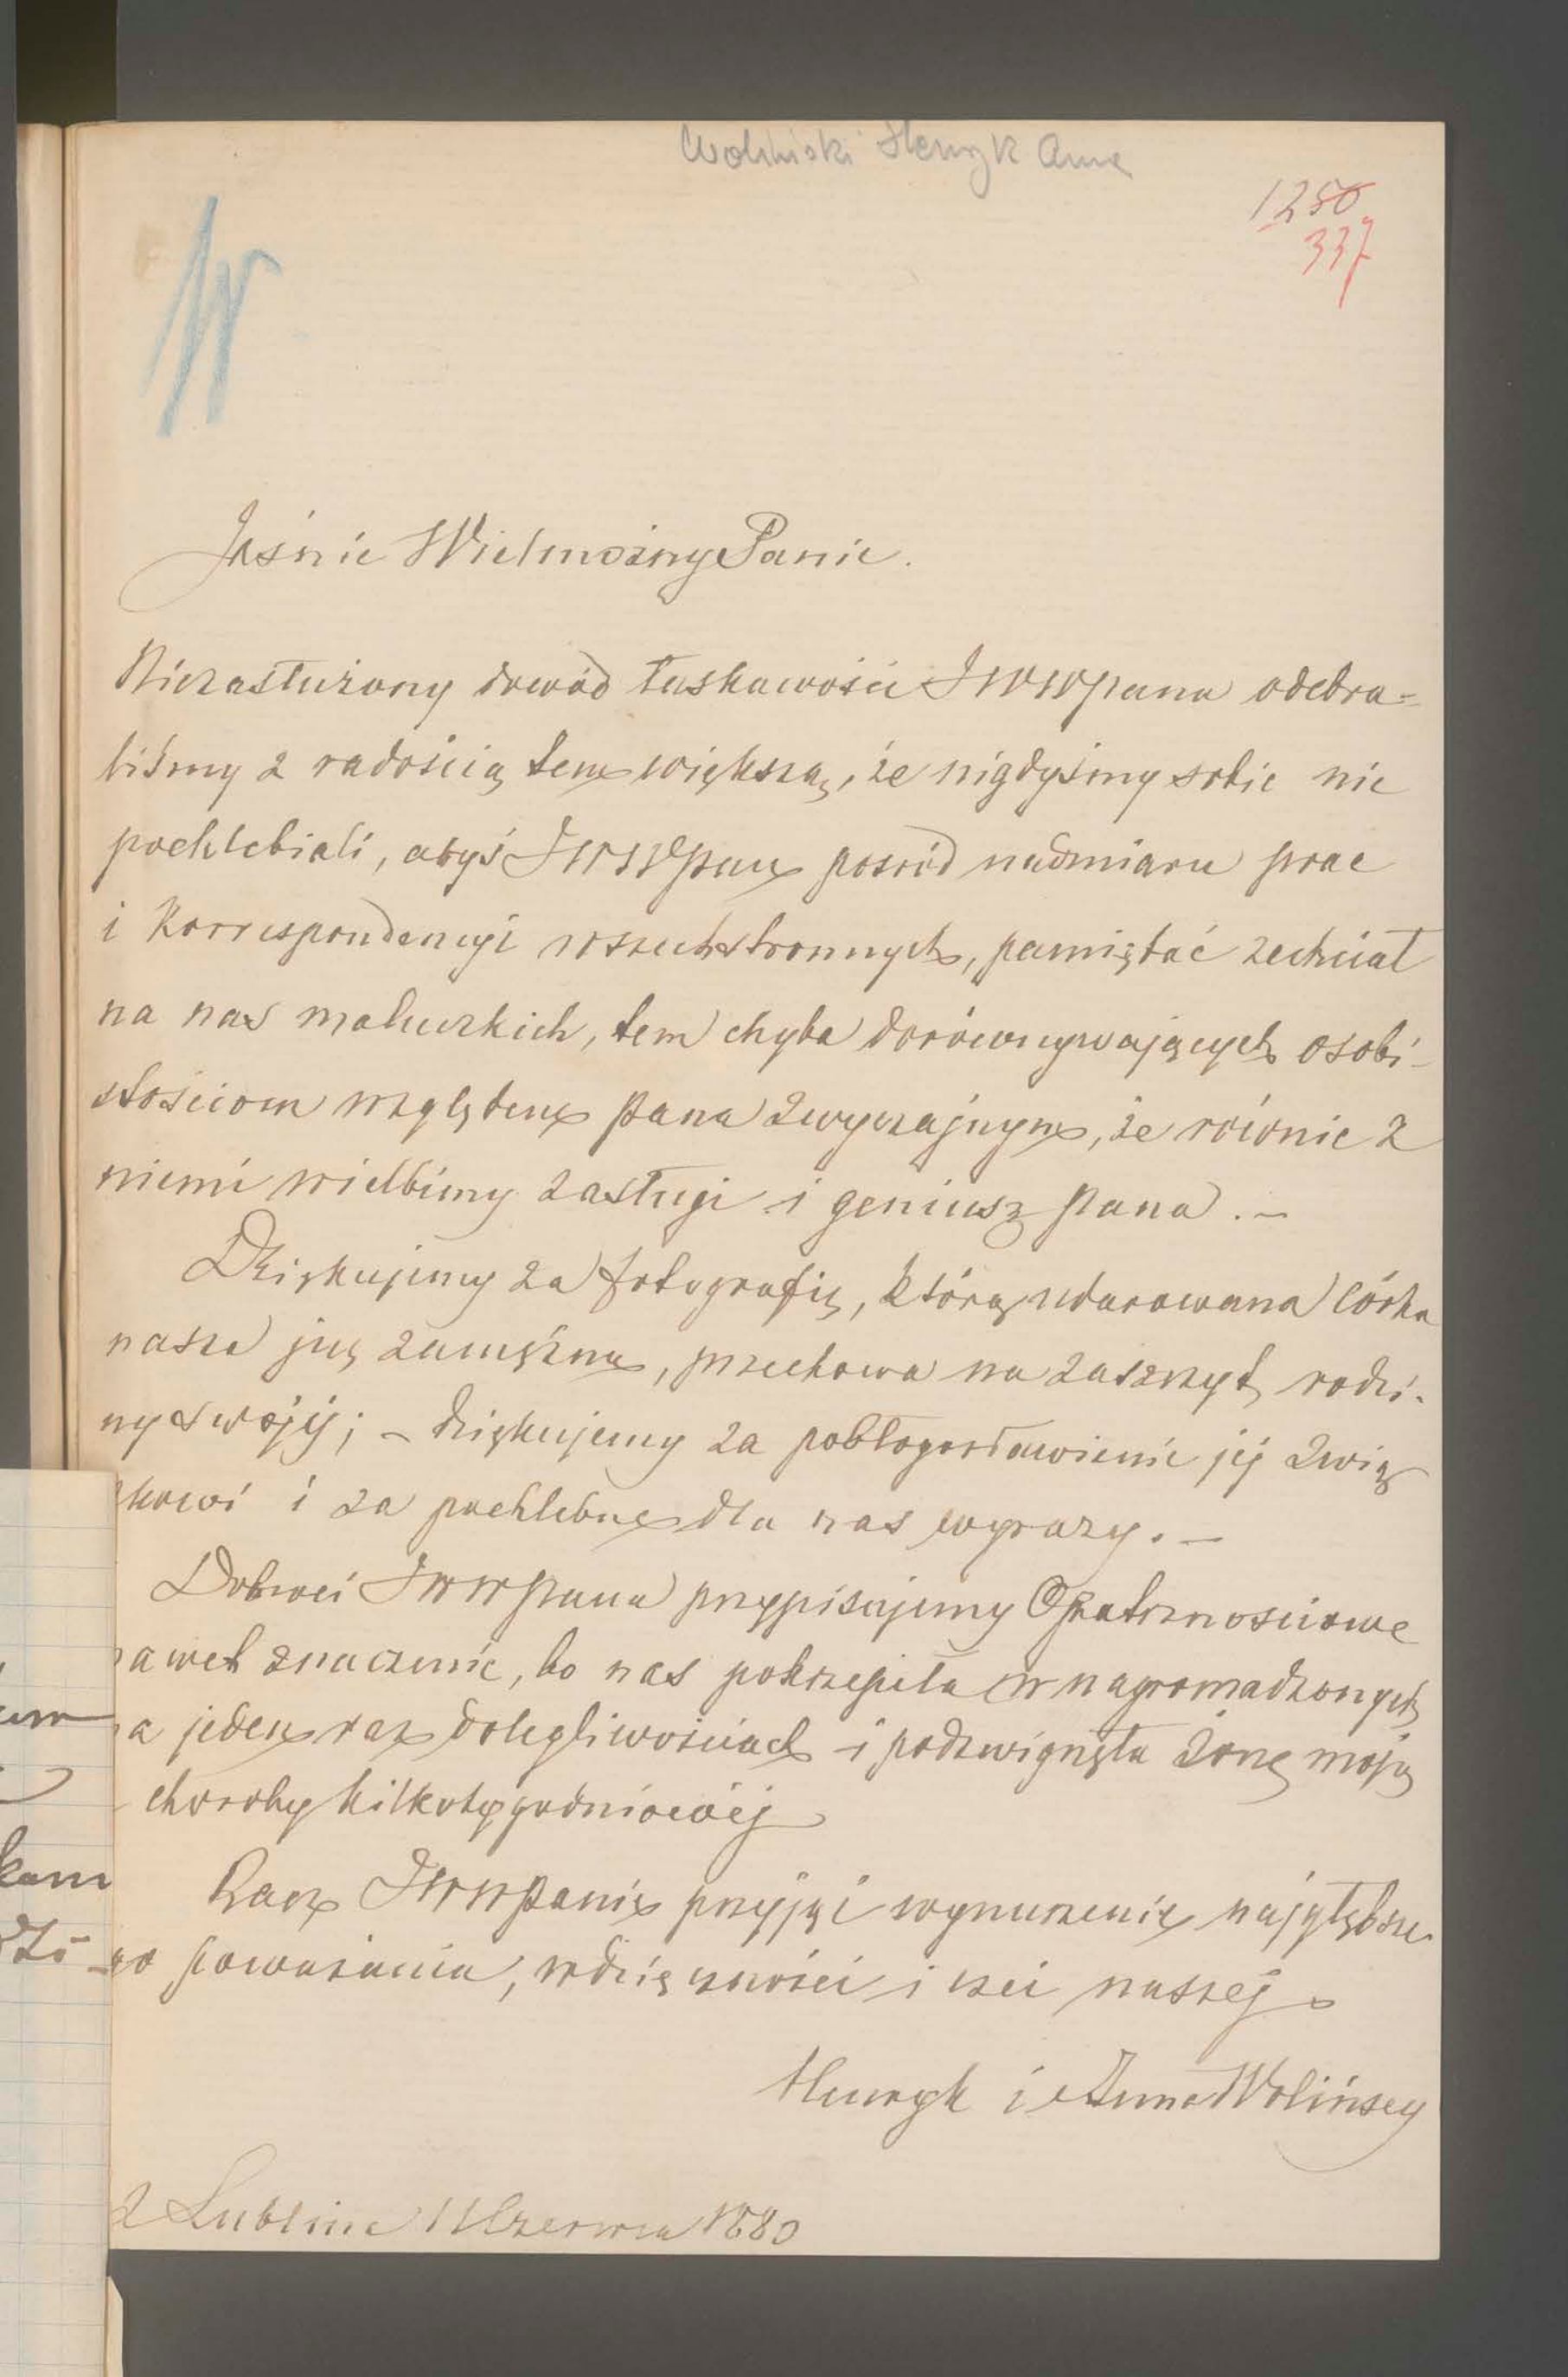 Woliński Henryk Anna
1250
337
W
Jaśnie Wielmożny Panie.
Niezasłużony dowód łaskawości JWWPana odebra=
liśmy z radością tem większą, że nigdyśmy sobie nie
pochlebiali, abyś JWWPan pośród nadmiaru prac
i Korrespondencyi wszechstronnych, pamiętać zechciał
na nas maluczkich, tem chyba dorównywających osobi-
stościom względem Pana zwyczajnym, że równie z
niemi wielbimy zasługi i geniusz Pana. –
Dziękujemy za fotografię, którą udarowana córka
nasza już zamężna, przechowa na zaszczyt rodzi-
ny swojéj; – dziękujemy za pobłogosławienie jéj zwią
zkowi i za pochlebne dla nas wyrazy. –
Dobroci JWWPana przypisujemy Opatrznościowe
nawet znaczenie, bo nas pokrzepiła w nagromadzonych
na jeden raz dolegliwościach i podzwignęła żonę moją
choroby kilkotygodniowéj
Racz JWWPanie przyjąć wynurzenie najgłębsze-
go poważania, wdzięczności i czci naszej
Henryk i Anna Wolińscy
z Lublina 11 Czerwca 1880
um
kam